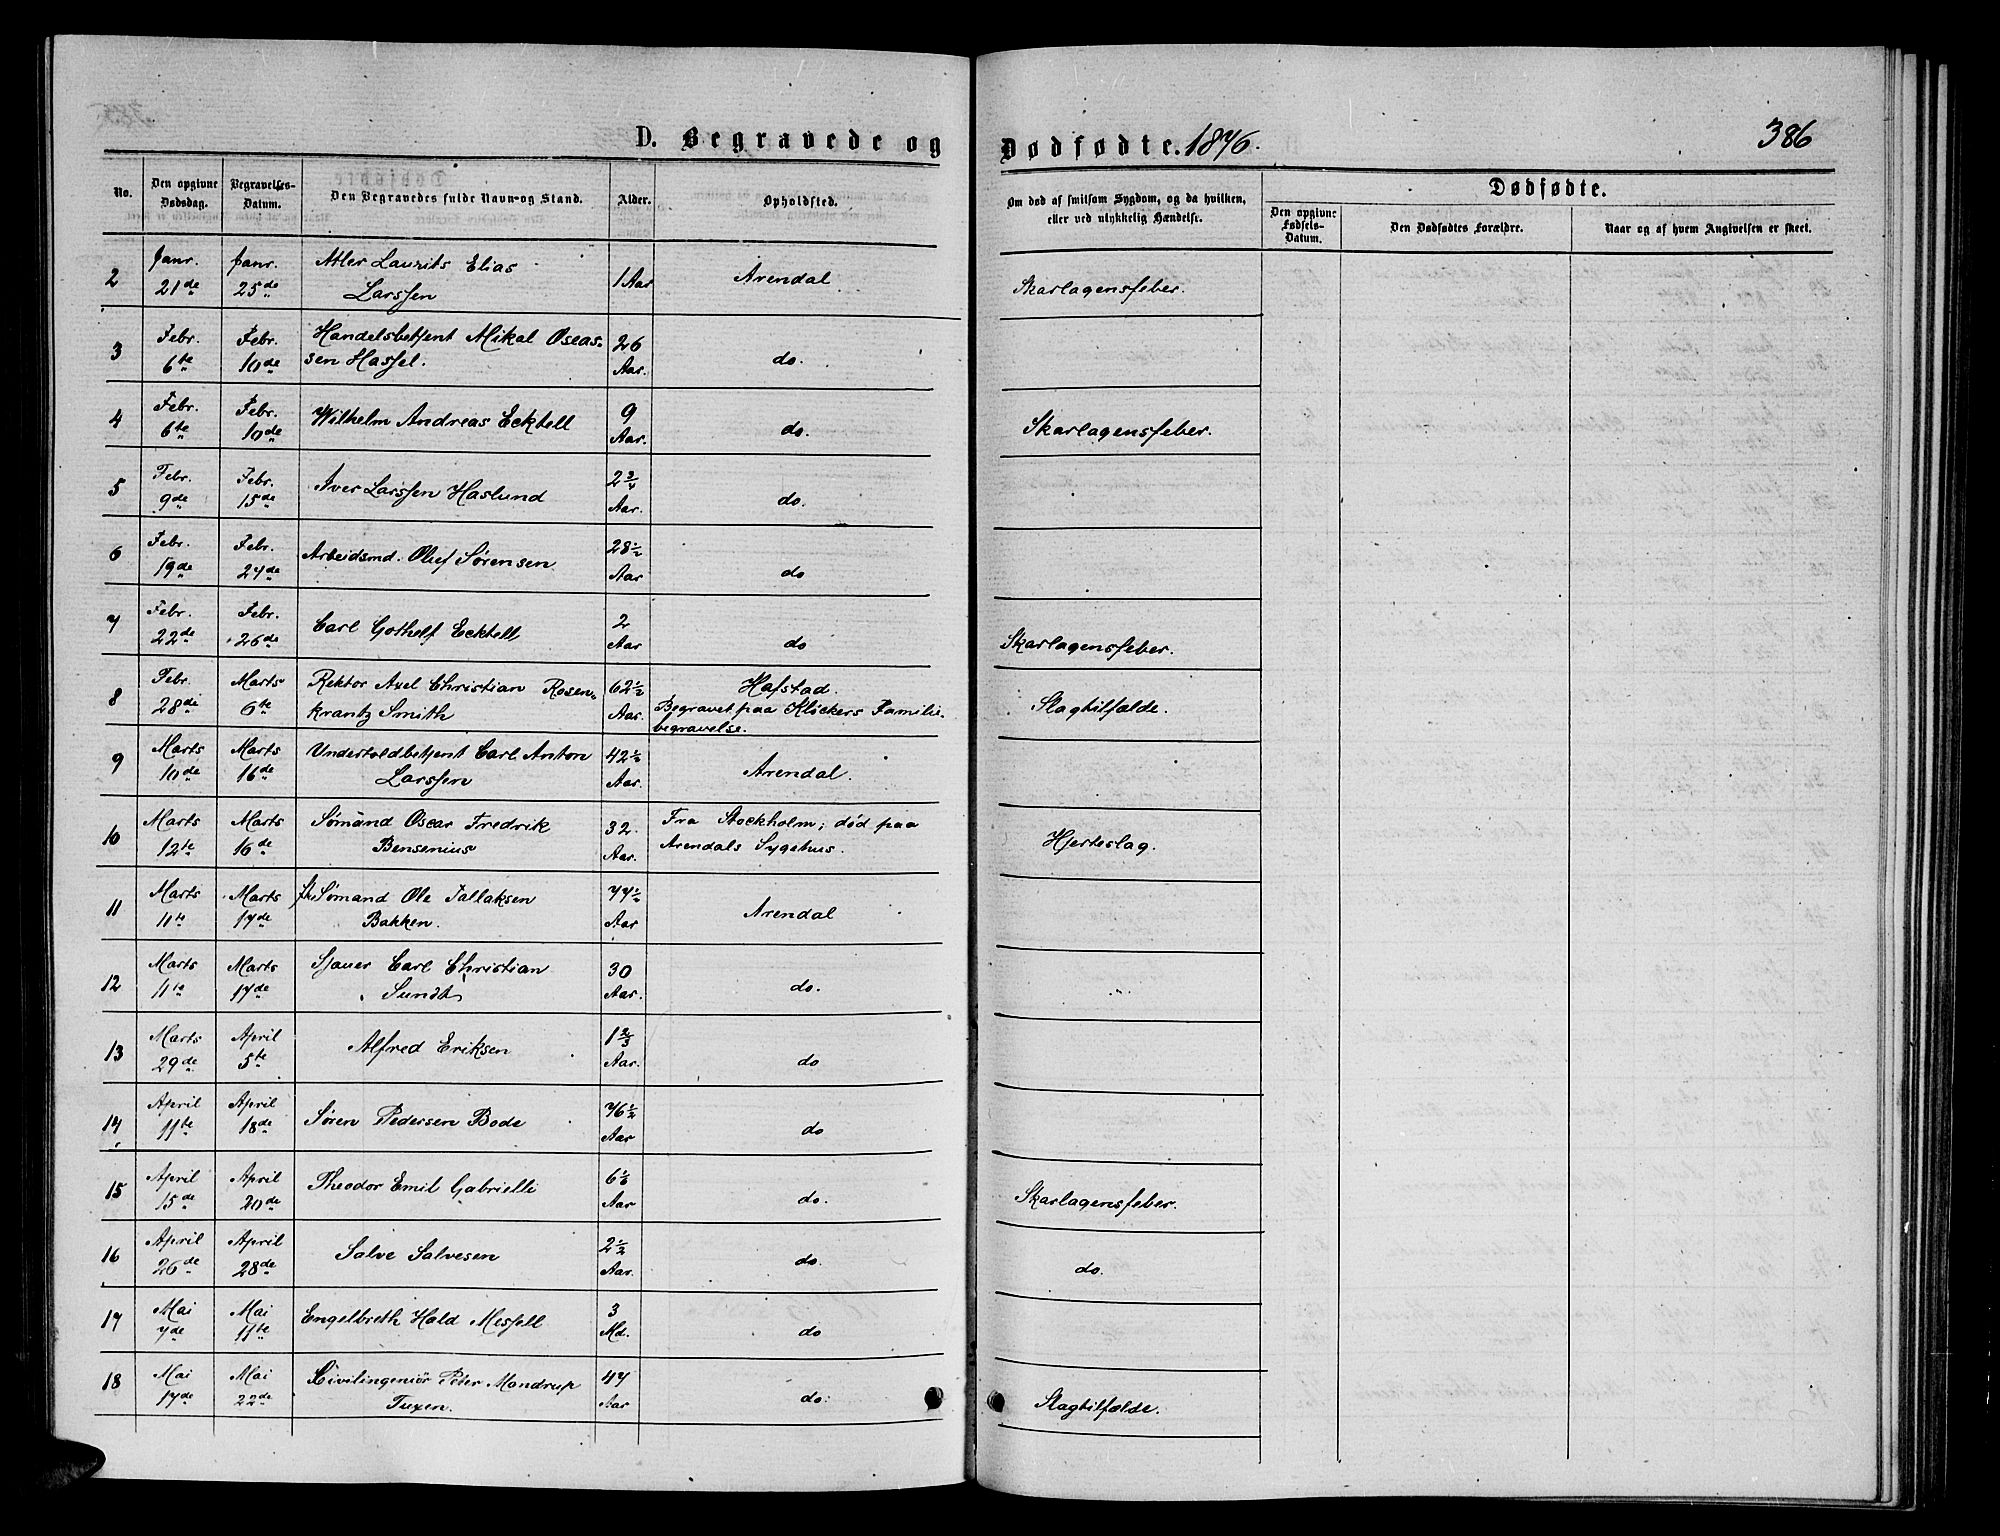 D. Begravede og Dødfødte. 1876. 386
No.
Den opgivne Dødsdag.
Begravelses-Datum.
Den Begravedes fulde Navn og Stand.
Alder.
Opholdsted.
Om død af smitsom Sygdom, og da hvilken, eller ved ulykkelig Hændelse.
Dødfødte.
Den opgivne Fødsels-Datum.
Den Dødfødtes Forældre.
Naar og af hvem Angivelsen er skeet.
2 Janr. 21de Janr. 25de Atler Laurits Elias
Larssen 1 Aar Arendal Skarlagensfeber.
3 Febr. 6te Febr. 10de Handelsbetjent Mikal Oseas-
sen Hassel. 26 Aar. do.
4 Febr. 6te Febr. 10de Wilhelm Andreas Ecktell 9 Aar. do. Skarlagensfeber.
5 Febr. 9de Febr. 15de Iver Larssen Haslund 2 3/4 Aar. do.
6 Febr. 19de Febr. 24de Arbeidsmd. Oluf Sørensen 28 1/2 Aar do
7 Febr. 22de Febr. 26de Carl Gothelf Ecktell 2 Aar do Skarlagensfeber.
8 Febr. 28de Marts 6te Rektor Axel Christian Rosen-
krantz Smith 62 1/2 Aar. Hafstad.
Begravet paa Kløckers Familie-
begravelse. Slagtilfælde.
9 Marts 10de Marts 16de Undertoldbetjent Carl Anton
Larssen 42 1/2 Aar. Arendal.
10 Marts 12te Marts 16de Sømand Oscar Fredrik
Bensenius 32. Aar. Fra Stockholm; død paa
Arendals Sygehus. Hjerteslag.
11 Marts 11te Marts 17de fh. Sømand Ole Tallaksen
Bakken. 77 1/2 Aar Arendal
12 Marts 11te Marts 17de Sjauer Carl Christian
Sundt 30 Aar. do.
13 Marts 29de April 5te Alfred Eriksen 1 2/3 Aar. do
14 April 11te April 18de Søren Pedersen Bode 76 1/2 Aar do
15 April 15de April 20de Theodor Emil Gabrielli 6 1/2 Aar do. Skarlagensfeber.
16 April 26de April 28de Salve Salvesen 2 1/2 Aar. do. do.
17 Mai 7de Mai 11te Engelbreth Hald Messell 3 Md. do
18 Mai 17de Mai 22de Civilingeniør Peter Mandrup
Tuxen. 47 Aar do. Slagtilfælde.